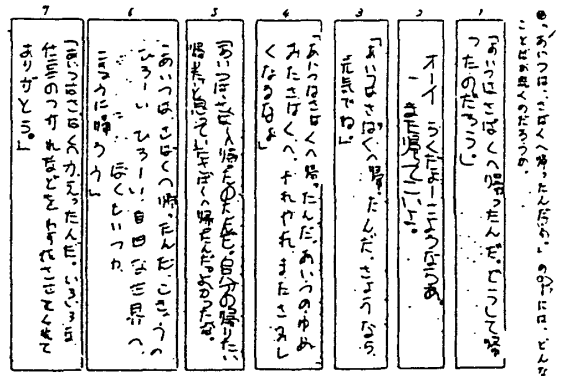 ⊕、あいつは、さばくへ帰ったんだわ。」の中には、どんな
ことばが続くのだろうか。
1
「あいつはさばくへ帰ったんだ。どうして帰
ったのだろう。」
2
オーイ らくだよーさようならあ
また帰ってこいよ。
3
「あいつはさばくへ帰ったんだ。さようなら
元気でね。」
4
「あいつはさばくへ帰ったんだ。あいつのゆめ
みたさばくへ。やれやれ、またさみし
くなるなよ」
5
「あいつはさばくへ帰ったのだ
帰りたい
さばくへ帰ったんだ。よかったな。
6
「あいつは、さばくへ帰ったんだ。こきょうの
ひろーい ひろーい自由な世界へ。
ぼくもいつか
帰ろう」
7
「あいつはさばくへかえったんだ。いろいろな
仕事のつかれなどをわすれさせてくれて
ありがとう。」